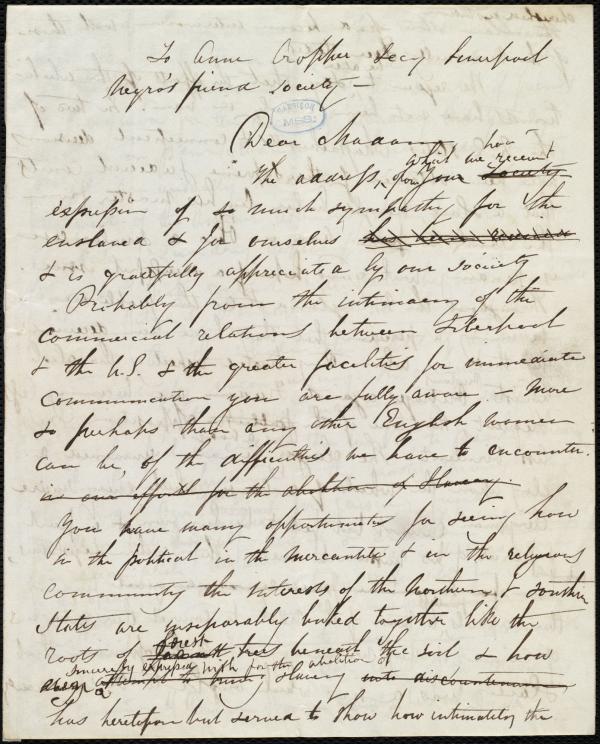 To Anne Cropper Secy Liverpool
Negros friend Society—
Dear Madam
The address, from your Society
expression of so much sympathy for the
enslaved & for ourselves
& is gratefully appreciated by our society
Probably from the intimacy of the
commercial relations between Liverpool
& the U.S. & the greater facilities for immediate
communication you are fully aware - more
so perhaps than any other English women
can be, of the difficulties we have to encounter.
in our efforts for the abolition of Slavery.
You have many opportunities for seeing how
in the political in the mercantile & in the religious
community the interests of the Northern & Southern
States are inseparably linked together like the
roots of forest trees beneath the soil & how
sincerely expressed wish for the abolition of
attempt to bring Slavery into discountenance
has heretofore but served to show how intimately the